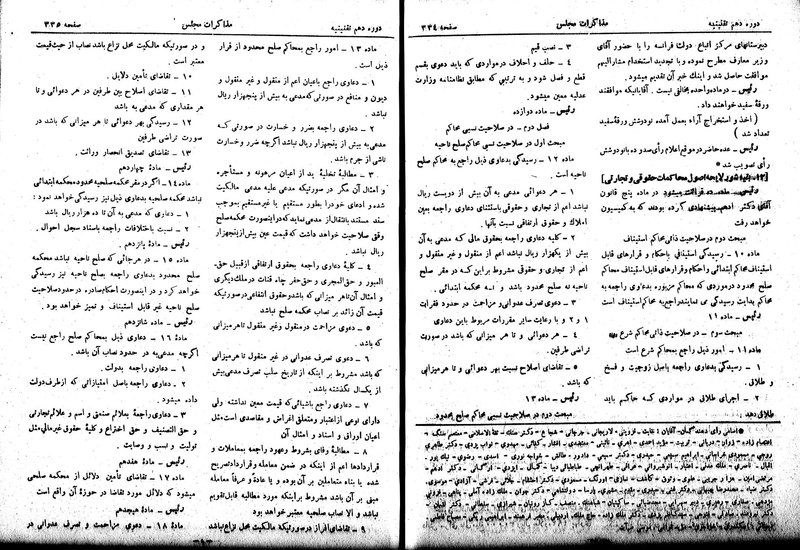 دوره دهم تقنینیه
مذاکرات مجلس
صفحه ۳۳۴
دبیرستانهای مرکز اتباع دولت فرانسه را با حضور آقای
وزیر معارف مطرح نموده و با تجدید استخدام مشارالیهم
موافقت حاصل شد و اینك خبر آن تقدیم میشود.
رئیس ـ در ماده واحده مخالفی نیست . آقایانیکه موافقند
ورقهٔ سفید خواهند داد .
( اخذ و استخراج آراء بعمل آمده نود و شش ورقهٔ سفید
تعداد شد )
رئیس ـ عده حاضر در موقع اعلام رأی صد و ده با نود و شش
رأی تصویب شد
[۳ـ بقیه شور لایحه اصول محاکمات حقوقی و تجارتی]
در ماده پنج قانون
آقای دکتر پیشنهادی کرده بودند که به کمیسیون
خواهد رفت
مبحث دوم در صلاحیت ذاتی محاکم استیناف
ماده ۱۰ ـ رسیدگی استینافی باحکام و قرارهای قابل
استیناف محاکم ابتدائی و احکام و قرارهای قابل استیناف محاکم
صلح محدود در موردی که محاکم مزبوره بدعاوی راجعه به
محاکم بدایت رسیدگی می نمایند راجع به محاکم استیناف است
رئیس ـ ماده ۱۱
مبحث سوم ـ در صلاحیت ذاتی محاکم شرع
ماده ۱۱ ـ امور ذیل راجع بمحاکم شرع است
۱ ـ رسیدگی بدعاوی راجعه باصل زوجیت و فسخ
و طلاق .
۲ ـ اجرای طلاق در مواردی که حاکم باید
طلاق دهد :
۳ ـ نصب قیم
۴ ـ حلف و احلاف در مواردی که باید دعوی بقسم
قطع و فصل شود و به ترتیبی که مطابق نظامنامه وزارت
عدلیه معین میشود.
رئیس ـ ماده دوازده
فصل دوم ـ در صلاحیت نسبی محاکم
مبحث اول در صلاحیت نسبی محاکم صلح ناحیه
ماده ۱۲ ـ رسیدگی بدعاوی ذیل راجع به محاکم صلح
ناحیه است .
۱ ـ هر دعوائی که مدعی به آن بیش از دویست ریال
نباشد اعم از تجارتی و حقوقی باستثنای دعاوی راجعه بعین
املاك و حقوق ارتفاقی نسبت بآنها .
۲ ـ کلیه دعاوی راجعه بحقوق مالی که مدعی به آن
بیش از یکهزار ریال نباشد اعم از منقول و غیر منقول و
اعم از تجارتی و حقوق مشروط بر این که در مقر صلح
ناحیه نه صلح محدود باشد و نه محکمه ابتدائی .
۳ ـ دعوی تصرف عدوانی و مزاحمت در حدود فقرات
۱ و ۲ و با رعایت سایر مقررات مربوط باین دعاوی
۴ ـ هر دعوائی و تا هر میزانی که باشد در صورت
تراضی طرفین.
۵ ـ تقاضای اصلاح نسبت بهر دعوائی و تا هر میزانی
که باشد
رئیس ـ ماده ۱۳
مبحث دوم در صلاحیت نسبی محاکم صلح محدود.
دوره دهم تقنینیه
مذاکرات مجلس
صفحه ۳۳۵
ماده ۱۳ ـ امور راجع بمحاکم صلح محدود از قرار
ذیل است
۱ ـ دعاوی راجع باعیان اعم از منقول و غیر منقول و
دیون و منافع در صورتی که مدعی به بیش از پنجهزار ریال
نباشد .
۲ ـ دعاوی راجعه بضرر و خسارت در صورتی که
مدعی به بیش از پنجهزار ریال نباشد اگرچه ضرر و خسارت
ناشی از جرم باشد .
۳ ـ مطالبهٔ تخلیهٔ ید از اعیان مرهونه و مستأجره
و امثال آن مگر در صورتیکه مدعی علیه مدعی مالکیت
شده و ادعای خود را بطور مستقیم یا غیر مستقیم به موجب
سند مستند بانتقال از مدعی نماید که در اینصورت محکمه صلح
وقتی صلاحیت خواهد داشت که قیمت عین بیش از پنجهزار
ریال نباشد
۴ ـ کلیهٔ دعاوی راجعه بحقوق ارتفاقی از قبیل حق
العبور و حق المجری و حق حفر چاه قنات در ملك دیگری
و امثال آن تا هر میزانی که باشد و حقوق انتفاعی در صورتیکه
قیمت آن زائد بر نصاب محکمه صلح نباشد
۵ ـ دعوی مزاحمت در منقول و غیر منقول تا هر میزانی
که باشد .
۶ ـ دعوی تصرف عدوانی در غیر منقول تا هر میزانی
که باشد مشروط بر اینکه از تاریخ سلب تصرف مدعی بیش
از یکسال نگذشته باشد .
۷ ـ دعاوی راجع باشیائی که قیمت معین نداشته ولی
دارای نوعی از اعتبار و متعلق اغراض و مقاصد است مثل
اعیان اوراق و اسناد و امثال آن
۸ ـ مطالبهٔ وفای بشروط و عهود راجعه بمعاملات و
قراردادها اعم از اینکه در ضمن معامله و قرارداد تصریح
شده یا بناء متعاملین بر آن بوده و یا عادةً و عرفاً معامله
مبنی بر آن باشد مشروط بر اینکه مورد مطالبه قابل تقویم
نباشد و الا نصاب صلحیه معتبر خواهد بود
۹ ـ تقاضای افراز در صورتیکه مالکیت محل نزاع نباشد
و در صورتیکه مالکیت محل نزاع باشد نصاب از حیث قیمت
معتبر است .
۱۰ ـ تقاضای تأمین دلایل .
۱۱ ـ تقاضای اصلاح بین طرفین در هر دعوائی و تا
هر مقداری که مدعی به باشد
۱۲ ـ رسیدگی بهر دعوائی تا هر میزانی که باشد در
صورت تراضی طرفین
۱۳ ـ تقاضای تصدیق انحصار وراثت .
رئیس ـ مادهٔ چهاردهم
ماده ۱۴ ـ اگر در مقر محکمه صلحیه محدود محکمه ابتدائی
نباشد محکمه صلحیه بدعاوی ذیل نیز رسیدگی خواهد نمود :
۱ ـ دعاوی که مدعی به آن تا ده هزار ریال باشد
۲ ـ نسبت باختلافات راجعه باسناد سجل احوال .
رئیس ـ مادهٔ پانزدهم
ماده ۱۵ ـ در هر جائی که صلح ناحیه نباشد محکمه
صلح محدود بدعاوی راجعه بصلح ناحیه نیز رسیدگی
خواهد کرد و در اینصورت احکام صادره در حدود صلاحیت
صلح ناحیه غیر قابل استیناف و تمیز خواهد بود .
رئیس ـ ماده شانزدهم
مادهٔ ۱۶ ـ دعاوی ذیل بمحاکم صلح راجع نیست
اگرچه مدعی به در حدود نصاب آن باشد .
۱ ـ دعاوی راجعه بدولت .
۲ ـ دعاوی راجعه باصل امتیازاتی که از طرف دولت
داده میشود .
۳ ـ دعاوی راجعهٔ بعلائم صنعتی و اسم و علائم تجارتی
و حق التصنیف و حق اختراع و کلیهٔ حقوق غیر مالی مثل
تولیت و نسب و وصایت .
رئیس ـ مادهٔ هفدهم
ماده ۱۷ ـ تقاضای تأمین دلائل از محکمه صلحی
میشود که دلائل مورد تقاضا در حوزهٔ آن واقع است
رئیس ـ مادهٔ هیجدهم
مادهٔ ۱۸ ـ دعوی مزاحمت و تصرف عدوانی در